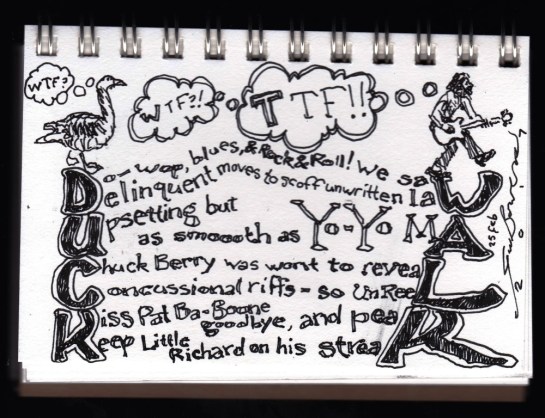 WTF?
WTF?!
TTF!!
Do-wop, blues, & Rock & Roll! We saW
Delinquent moves to scoff unwritten laW
Upsetting but
as smooooth as Yo-Yo MA
Chuck Berry was wont to reveaL
Concussional riffs - so UnReeL
Kiss Pat Ba-Boone
goodbye, and peaK
Keep Little
Richard on his streaK
25 Feb